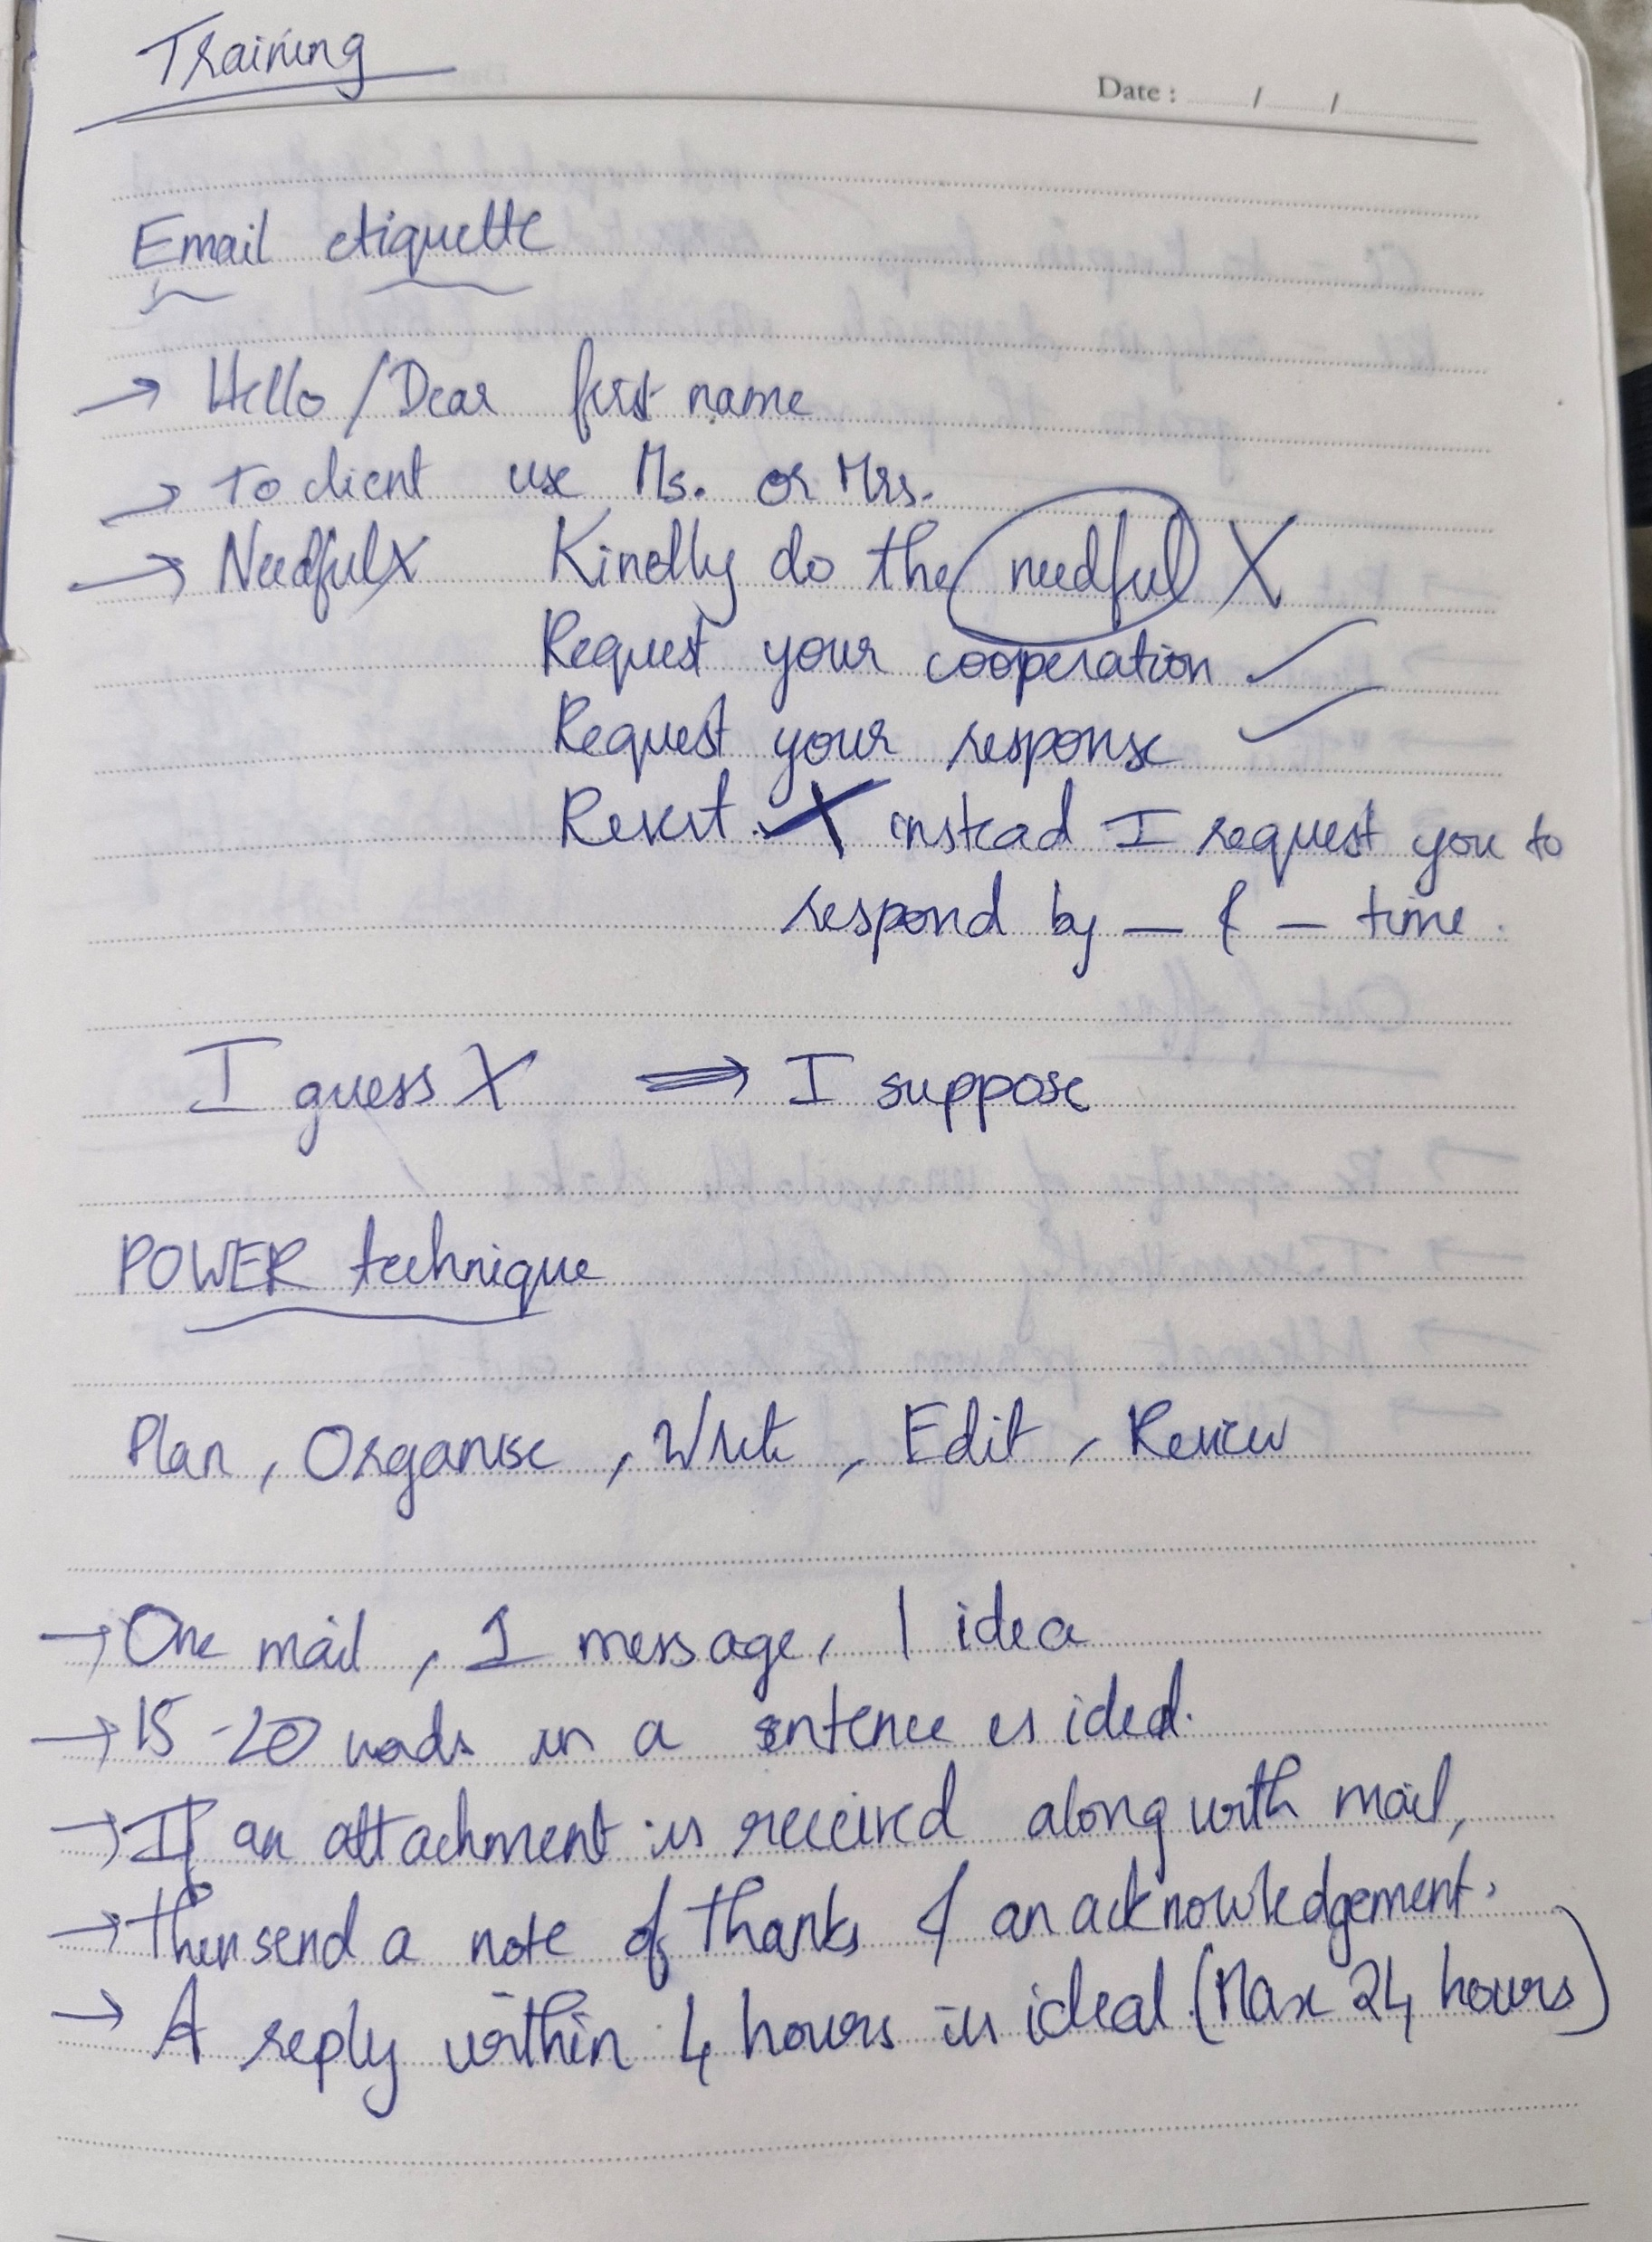 Training
Date : / /
Email etiquette
→ Hello / Dear first name
→ To client use Ms. or Mrs.
→ Needful X Kindly do the needful X
Request your cooperation ✓
Request your response ✓
Revert X instead I request you to
respond by — & — time.
I guess X ⇒ I suppose
POWER technique
Plan, Organise, Write, Edit, Review
→ One mail, 1 message, 1 idea
→ 15-20 words in a sentence is ideal.
→ If an attachment is received along with mail,
→ then send a note of thanks & an acknowledgement.
→ A reply within 4 hours is ideal (Max 24 hours)